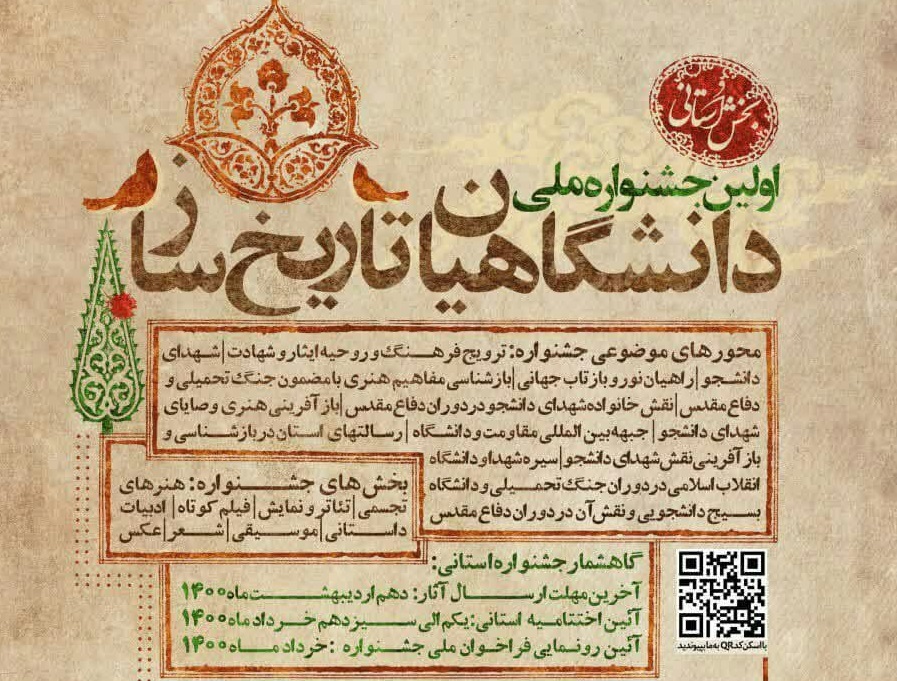 بخش استانی
اولین جشنواره ملی
دانشگاهیان تاریخ ساز
محورهای موضوعی جشنواره: ترویج فرهنگ و روحیه ایثار و شهادت | شهدای
دانشجو | راهیان نور و بازتاب جهانی | بازشناسی مفاهیم هنری با مضمون جنگ تحمیلی و
دفاع مقدس | نقش خانواده شهدای دانشجو در دوران دفاع مقدس | باز آفرینی هنری وصایای
شهدای دانشجو | جبهه بین المللی مقاومت و دانشگاه | رسالتهای استان در بازشناسی و
باز آفرینی نقش شهدای دانشجو | سیره شهدا و دانشگاه
انقلاب اسلامی در دوران جنگ تحمیلی و دانشگاه
بسیج دانشجویی و نقش آن در دوران دفاع مقدس
بخش های جشنواره: هنرهای
تجسمی | تئاتر و نمایش | فیلم کوتاه | ادبیات
داستانی | موسیقی | شعر | عکس
گاهشمار جشنواره استانی:
آخرین مهلت ارسال آثار: دهم اردیبهشت ماه ۱۴۰۰
آئین اختتامیه استانی: یکم الی سیزدهم خرداد ماه ۱۴۰۰
آئین رونمایی فراخوان ملی جشنواره : خرداد ماه ۱۴۰۰
با اسکن کد QR به ما بپیوندید